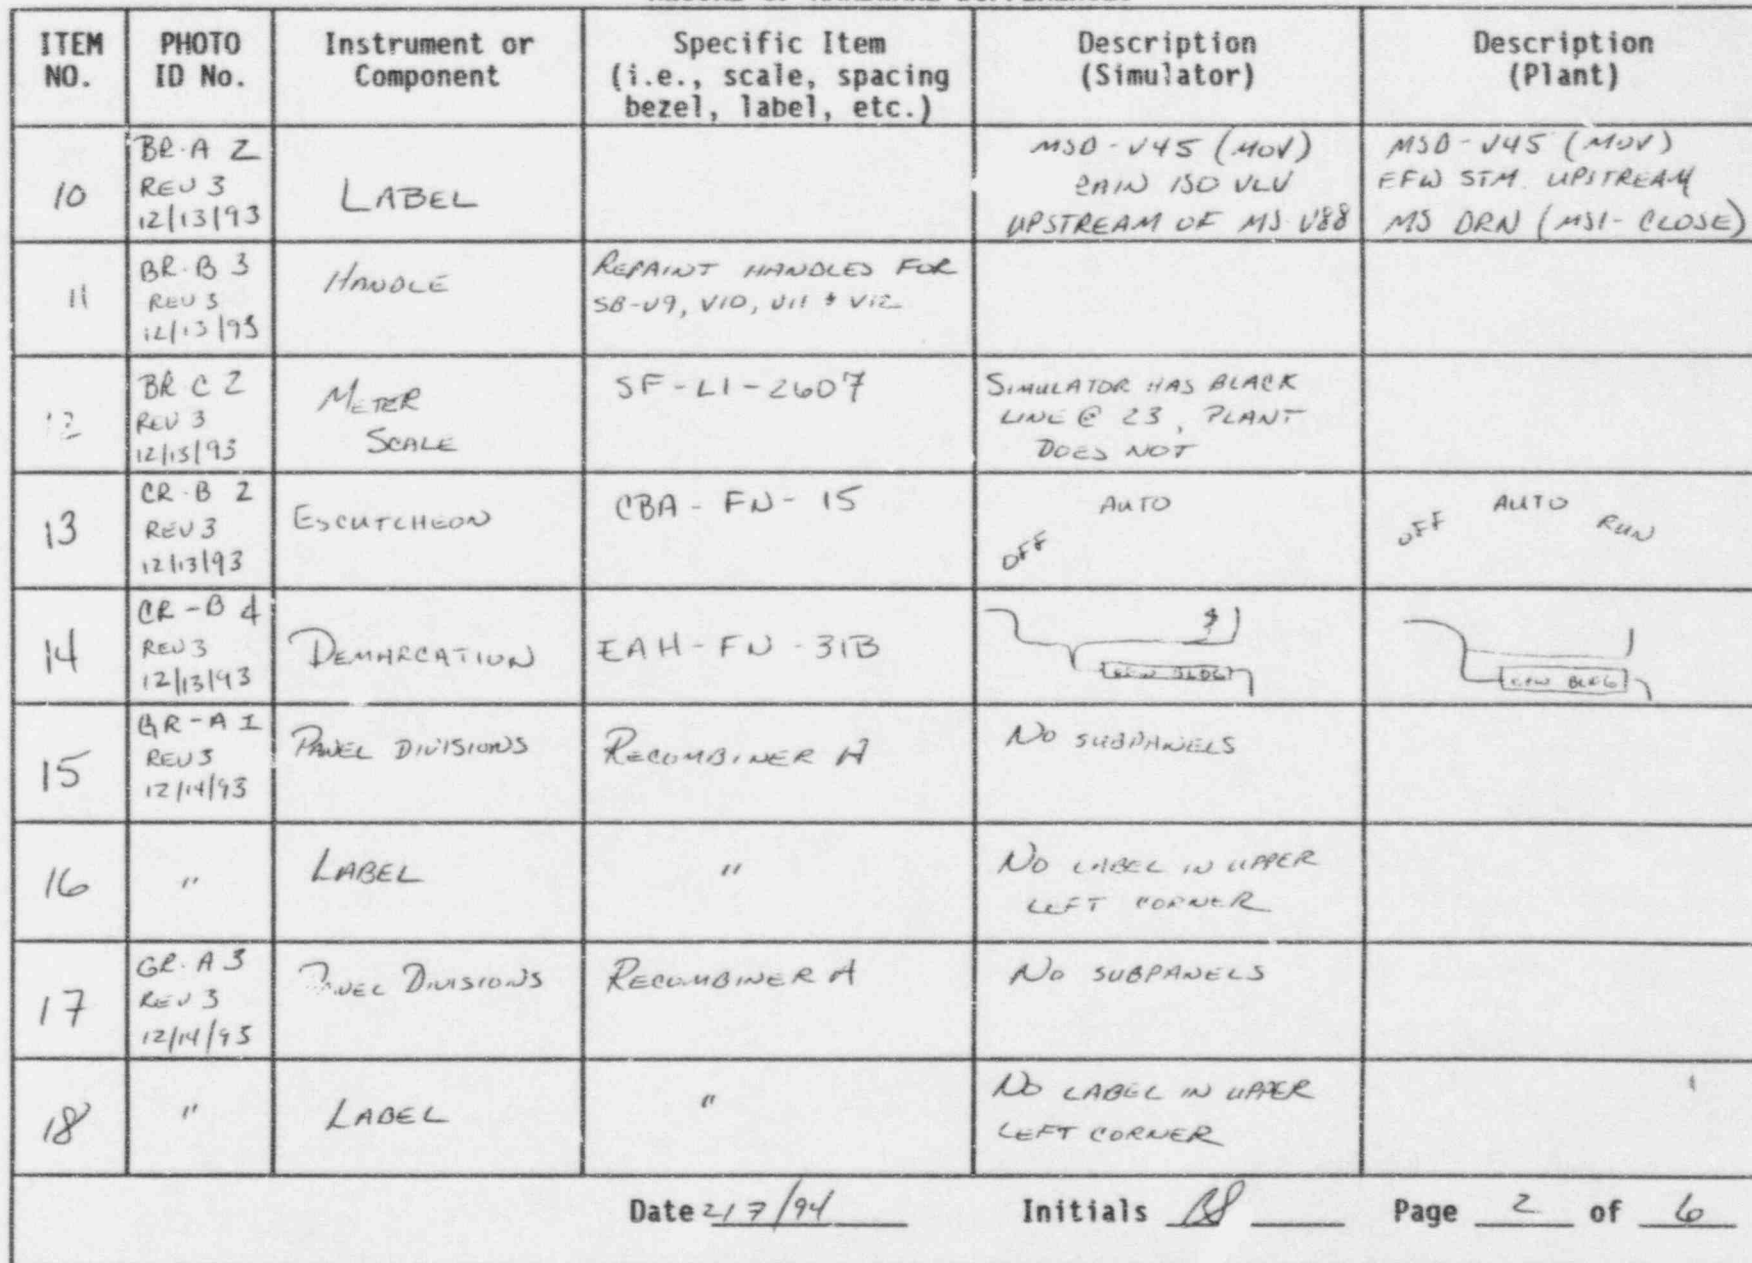 RECORD OF HARDWARE DIFFERENCES
ITEM NO.
PHOTO ID No.
Instrument or Component
Specific Item
(i.e., scale, spacing
bezel, label, etc.)
Description
(Simulator)
Description
(Plant)
10
BR-A 2
REV 3
12/13/93
LABEL
MSD-V45 (MOV)
ISO VLV
UPSTREAM OF MS-V88
MSD-V45 (MOV)
EFW STM UPSTREAM
MS DRN (MSI-CLOSE)
11
BR-B 3
REV 3
12/13/93
HANDLE
REPAINT HANDLES FOR
SB-V9, V10, V11 & V12
12
BR C 2
REV 3
12/13/93
METER
SCALE
SF-LI-2607
SIMULATOR HAS BLACK
LINE @ 23, PLANT
DOES NOT
13
CR-B 2
REV 3
12/13/93
ESCUTCHEON
CBA-FN-15
OFF AUTO
OFF AUTO RUN
14
CR-B 4
REV 3
12/13/93
DEMARCATION
EAH-FN-31B
EFW BLDG
EFW BLDG
15
GR-A 1
REV 3
12/14/93
PANEL DIVISIONS
RECOMBINER A
NO SUBPANELS
16
"
LABEL
"
NO LABEL IN UPPER
LEFT CORNER
17
GR-A 3
REV 3
12/14/93
PANEL DIVISIONS
RECOMBINER A
NO SUBPANELS
18
"
LABEL
"
NO LABEL IN UPPER
LEFT CORNER
Date 2/7/94 Initials Page 2 of 6